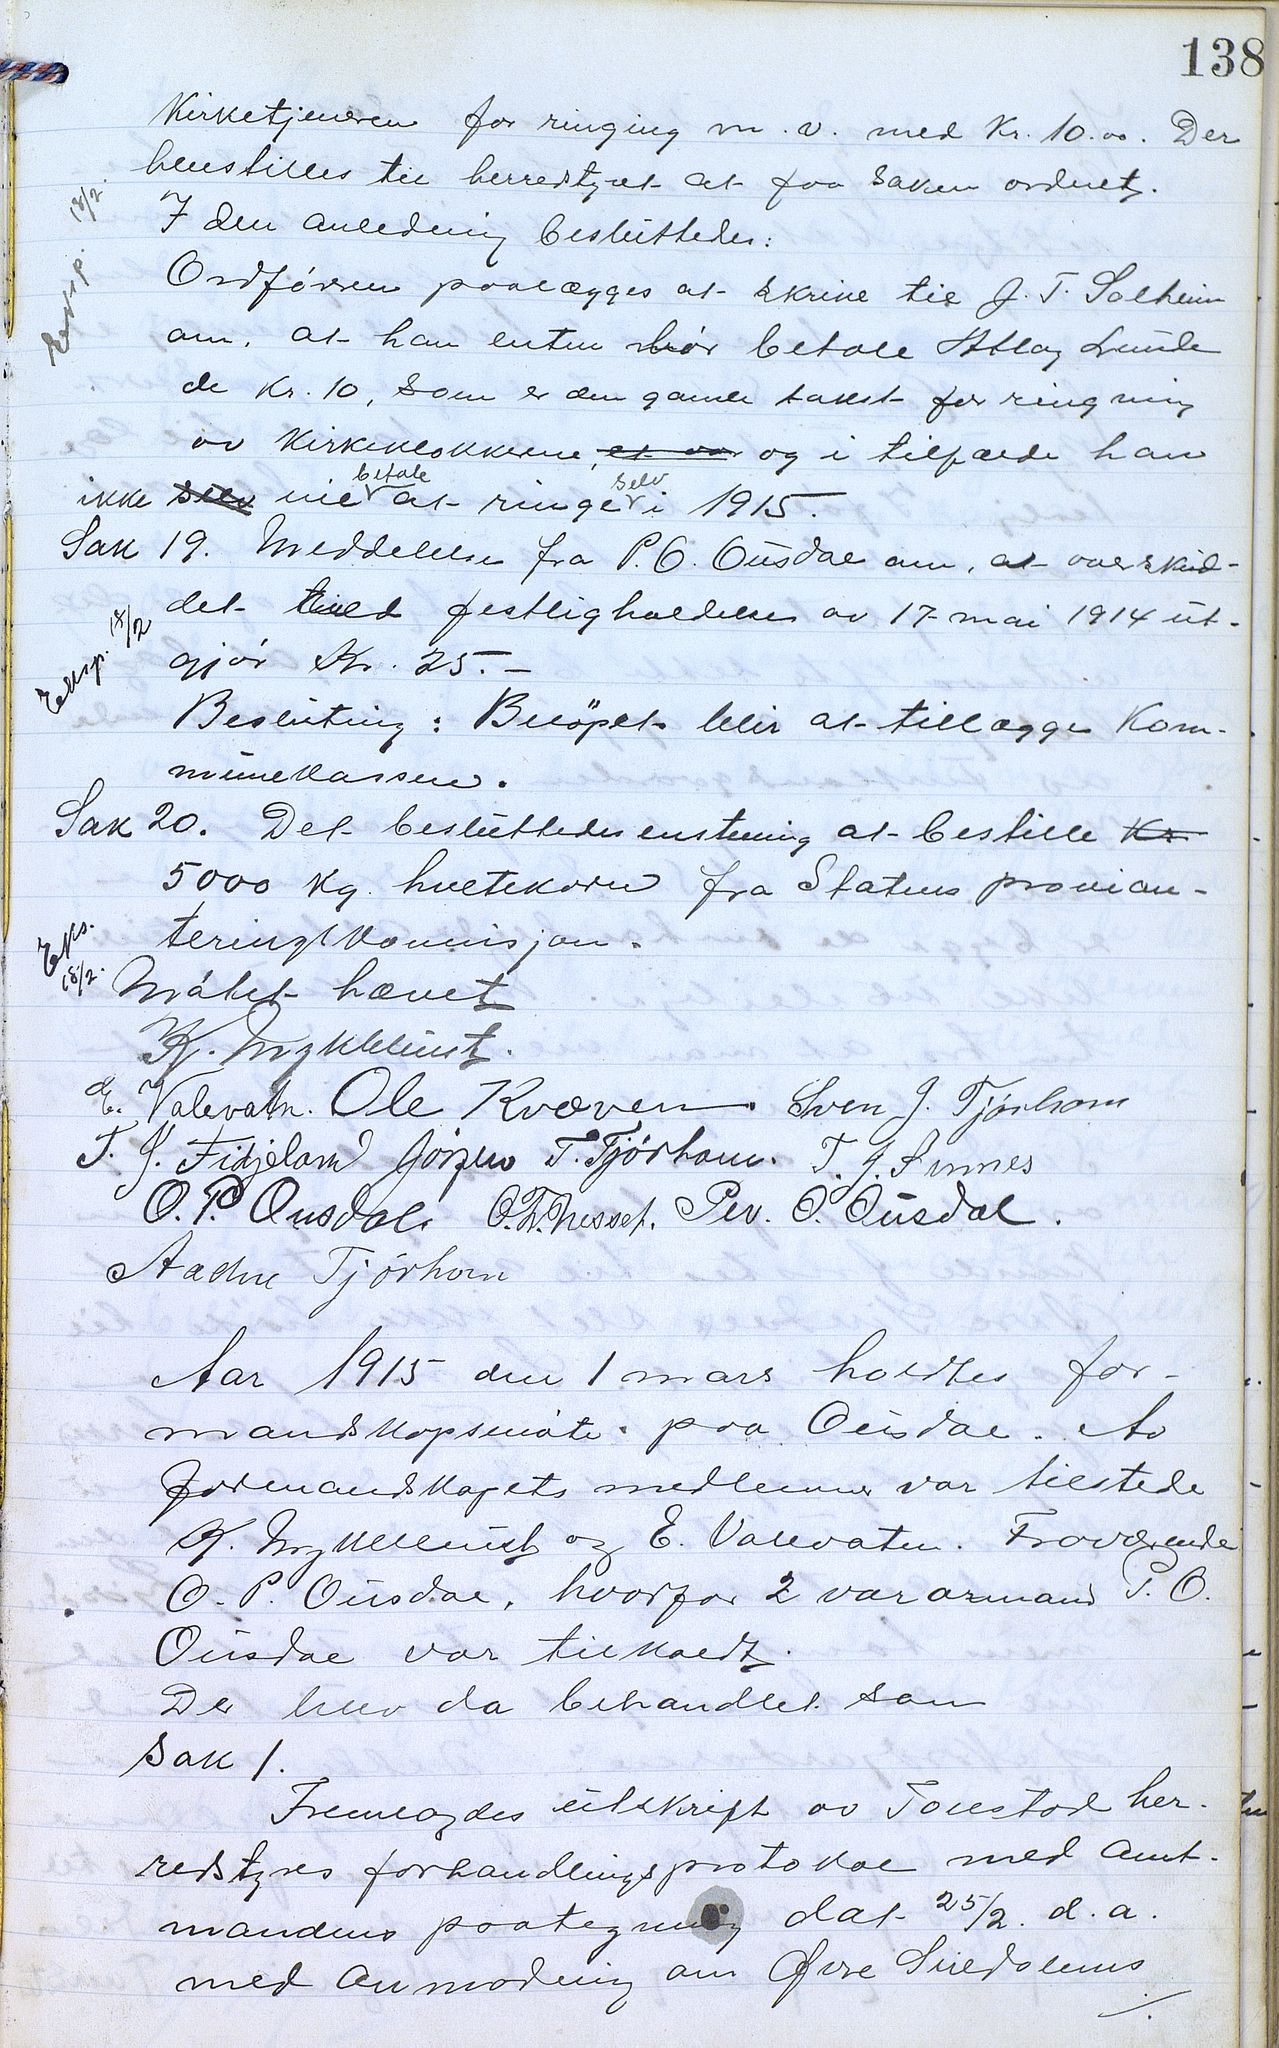 138
Kirketjeneren for ringing m. v. med Kr. 10.00. Der
henstilles til herredstyret at faa saken ordnet.
I den anledning besluttedes:
Eksp. 18/2.
Ordføreren paalægges at skrive til J. T. Solheim
om, at han enten bør betale Atlag Lunde
de Kr. 10, som er den gamle takst for ringning
av Kirkeklokkerne, et var og i tilfælde han
ikke selv vil betale at ringe selv i 1915.
Sak 19. Meddelelse fra P. O. Ousdal om, at overskud-
det ved festligholdelsen av 17 mai 1914 ut-
Eksp. 18/2
gjør Kr. 25.-
Beslutning: Beløpet blir at tillægge Kom-
munekassen.
Sak 20. Det besluttedes enstemmig at bestille Kr
5000 kg. hvetekorn fra Statens provian-
Eks. 18/2.
teringskommisjon.
Møtet hævet
K. Mykklebust.
E. Valevatn. Ole Kvæven. Sven J. Tjørhom
T. J. Fidjeland Jørgen T. Tjørhom. T. J. Sinnes
O. P. Ousdal. O. T. Nesset. Per. O. Ousdal.
Aadne Tjørhom
Aar 1915 den 1 mars holdtes for-
mandskapsmøte paa Ousdal. Av
formandskapets medlemmer var tilstede
K. Mykklebust og E. Valevatn. Fraværende
O. P. Ousdal, hvorfor 2 varamand P. O.
Ousdal var tilkaldt.
Der blev da behandlet som
Sak 1.
Fremlagdes utskrift av Tonstad her-
redstyres forhandlingsprotokol med amt-
mandens paategning dat 25/2. d. a.
med anmodning om Øvre Siredalens
./.